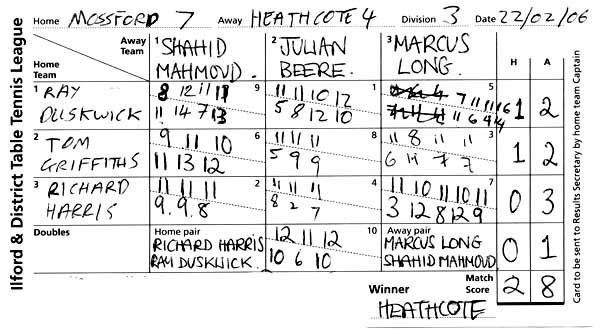 Ilford & District Table Tennis League
Home MOSSFORD 7 Away HEATHCOTE 4 Division 3 Date 22/02/06
Away Team 1 SHAHID MAHMOUD. 2 JULIAN BEERE. 3 MARCUS LONG. H A
Home Team
1 RAY DUSKWICK 9 1 5
11 11 10 12 7 11 11 11 6
11 14 7 13 5 8 12 10 11 6 9 4
1 2
2 TOM GRIFFITHS 6 8 3
9 11 10 11 11 11 11 8 11 11
11 13 12 5 9 9 6 11 7 7
1 2
3 RICHARD HARRIS 2 4 7
11 11 11 11 11 11 11 10 11 10 11
9.9.8 8 2 7 3 12 8 12 9
0 3
Doubles Home pair 10 Away pair
RICHARD HARRIS 12 11 12 MARCUS LONG
RAY DUSKWICK. 10 6 10 SHAHID MAHMOUD
0 1
Match Score 2 8
Winner
HEATHCOTE
Card to be sent to Results Secretary by home team Captain